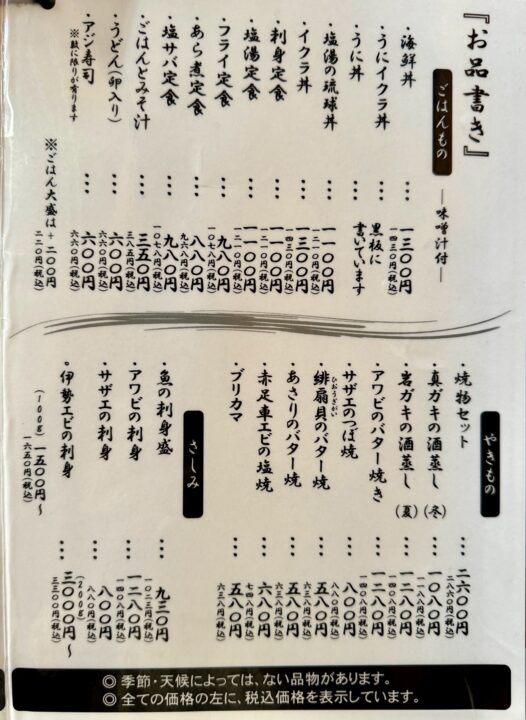 『お品書き』
ごはんもの
―味噌汁付―
・海鮮丼 … 一三〇〇円
一四三〇円(税込)
・うにイクラ丼 … 黒板に
・うに丼 … 書いています
・塩湯の琉球丼 … 一一〇〇円
一二一〇円(税込)
・イクラ丼 … 一三〇〇円
一四三〇円(税込)
・刺身定食 … 一一〇〇円
一二一〇円(税込)
・塩湯定食 … 一一〇〇円
一二一〇円(税込)
・フライ定食 … 九八〇円
一〇七八円(税込)
・あら煮定食 … 八八〇円
九六八円(税込)
・塩サバ定食 … 九八〇円
一〇七八円(税込)
・ごはんとみそ汁 … 三五〇円
三八五円(税込)
・うどん(卵入り) … 六〇〇円
六六〇円(税込)
・アジ寿司 … 六〇〇円
※数に限りが有ります
六六〇円(税込)
※ごはん大盛は+二〇〇円
二二〇円(税込)
やきもの
・焼物セット … 二六〇〇円
二八六〇円(税込)
・真ガキの酒蒸し(冬) … 一〇八〇円
一一八八円(税込)
・岩ガキの酒蒸し(夏) … 一二八〇円
一四〇八円(税込)
・アワビのバター焼き … 一二八〇円
一四〇八円(税込)
・サザエのつぼ焼 … 八〇〇円
八八〇円(税込)
ひおうぎがい
・緋扇貝のバター焼 … 五八〇円
六三八円(税込)
・あさりのバター焼 … 五八〇円
六三八円(税込)
・赤足車エビの塩焼 … 六八〇円
七四八円(税込)
・ブリカマ … 五八〇円
六三八円(税込)
さしみ
・魚の刺身盛 … 九三〇円
一〇二三円(税込)
・アワビの刺身 … 一二八〇円
一四〇八円(税込)
・サザエの刺身 … 八〇〇円
八八〇円(税込)
・伊勢エビの刺身 … (200g) 三〇〇〇円〜
三三〇〇円(税込)
(100g) 一五〇〇円〜
一六五〇円(税込)
◎季節・天候によっては、ない品物があります。
◎全ての価格の左に、税込価格を表示しています。